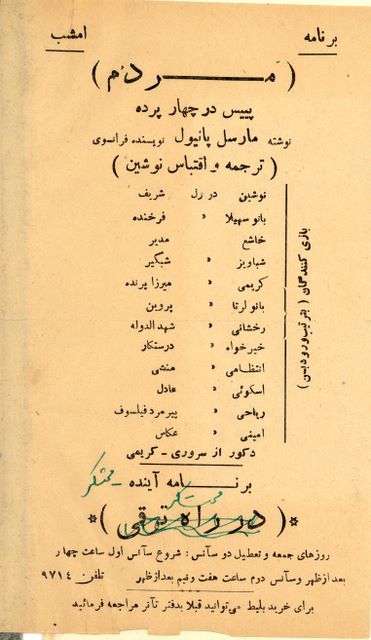 برنامه امشب
( مـــردم )
پییس در چهار پرده
نوشته مارسل پانیول نویسنده فرانسوی
( ترجمه و اقتباس نوشین )
بازی کنندگان ( بترتیب ورود بسن )
نوشین در رل شریف
بانو سهیلا » فرخنده
خاشع » مدیر
شباویز » شبگیر
کریمی » میرزا پرنده
بانو لرتا » پروین
رخشانی » شهدالدوله
خیرخواه » درستکار
انتظامی » منشی
اسکوئی » عادل
ریاحی » پیرمرد فیلسوف
امینی » عکاس
دکور از سروری - کریمی
برنـــامه آینده - محتکر
محتکر
*( در راه ترقی )*
روزهای جمعه و تعطیل دو سآنس : شروع سآنس اول ساعت چهار
بعد از ظهر وسآنس دوم ساعت هفت و نیم بعد از ظهر تلفن ۹۷۱۴
برای خرید بلیط می‌توانید قبلا بدفتر تآتر مراجعه فرمائید